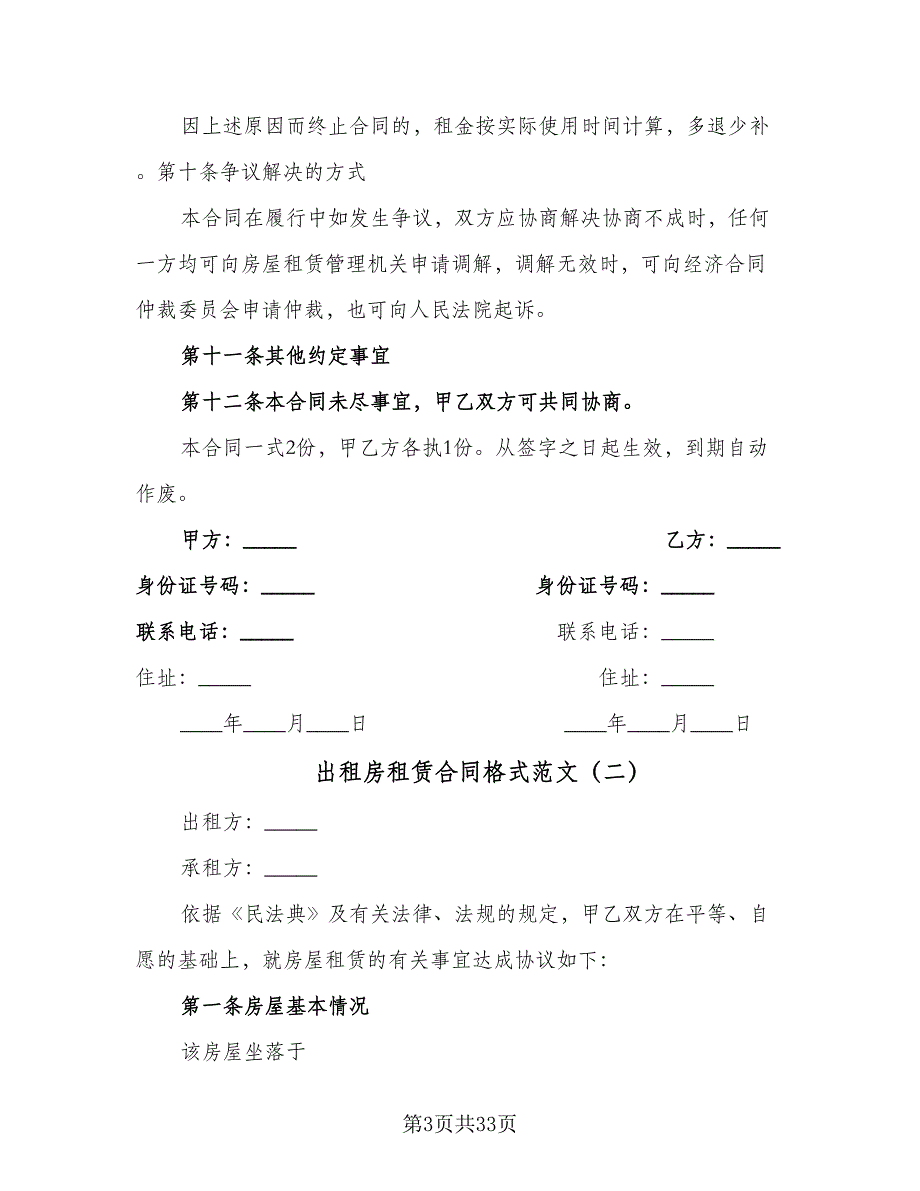 因上述原因而终止合同的，租金按实际使用时间计算，多退少补
。第十条争议解决的方式
本合同在履行中如发生争议，双方应协商解决协商不成时，任何
一方均可向房屋租赁管理机关申请调解，调解无效时，可向经济合同
仲裁委员会申请仲裁，也可向人民法院起诉。
第十一条其他约定事宜
第十二条本合同未尽事宜，甲乙双方可共同协商。
本合同一式2份，甲乙方各执1份。从签字之日起生效，到期自动
作废。
甲方：_____ 乙方：_____
身份证号码：_____ 身份证号码：_____
联系电话：_____ 联系电话：_____
住址：_____ 住址：_____
____年____月____日 ____年____月____日
出租房租赁合同格式范文（二）
出租方：_____
承租方：_____
依据《民法典》及有关法律、法规的规定，甲乙双方在平等、自
愿的基础上，就房屋租赁的有关事宜达成协议如下：
第一条房屋基本情况
该房屋坐落于
第3页共33页